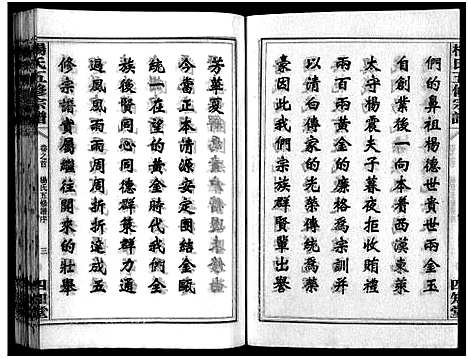 楊氏五修宗譜
們的鼻祖楊德貴世兩金玉
自創業後一向本着西漢東萊
太守楊震夫子暮夜拒收
一千両百両黃金的廉格為宗訓并
以清白傳家的光榮傳統為榮
豪因此我們宗族群賢輩出譽
四知堂
芳華夏
今當正本清源安定團結金甌
統一在望的黃金時代我們全
族後賢同心同德群集群力通
過風風雨雨折折叠成五
修宗譜貴屬繼往開來的壯舉
楊氏五修宗譜
卷之首
楊氏五修譜序
三
四知堂